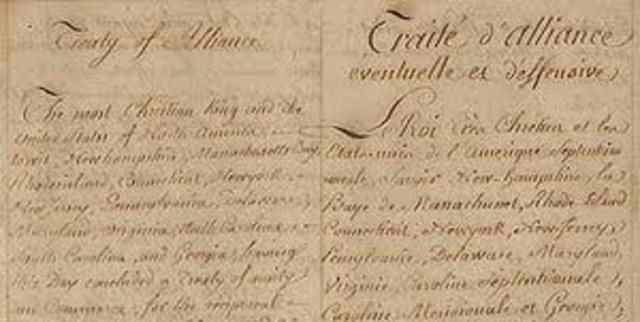 Treaty of Alliance
The most Christian King and the
United States of North America,
to wit, Newhampshire, Massachusetts Bay,
Rhodeisland, Connecticut, Newyork,
New Jersey, Pennsylvania, Delaware,
Maryland, Virginia, North Carolina,
South Carolina, and Georgia, having
this Day concluded a Treaty of amity
and Commerce, for the reciprocal
Traité d'alliance
éventuelle et déffensive
Le Roi très Chrétien et les
Etats-unis de l'amérique septentrio
nale, savoir New-hampshire, la
Baye de Massachuset, Rhode island
Connecticut, Newyork, New-Jersey,
Pensylvanie, Delaware, Maryland,
Virginie, Caroline septentrionale,
Caroline Méridionale et Georgie,